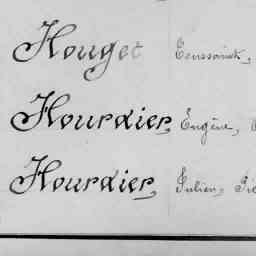 Houget Toussaint,
Hourdier, Eugène,
Hourdier, Julien,